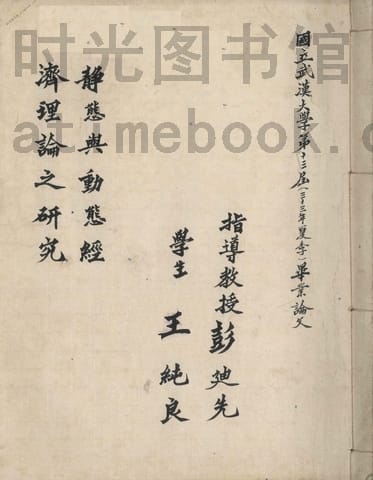 國立武漢大學第十三屆(三十三年夏季)畢業論文
指導教授彭迪先
學生王純良
靜態與動態經
濟理論之研究
时光图书馆
atimebook.c